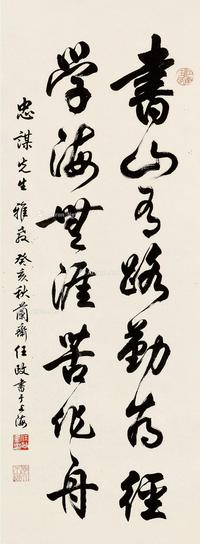 書山有路勤为徑
学海無涯苦作舟
忠謀先生雅教 癸亥秋蘭齋任政書于上海